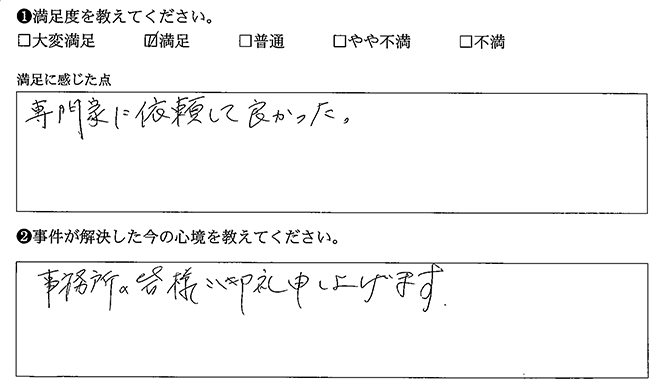 ❶満足度を教えてください。
□大変満足 ☑満足 □普通 □やや不満 □不満
満足に感じた点
専門家に依頼して良かった。
❷事件が解決した今の心境を教えてください。
事務所の皆様に御礼申し上げます.